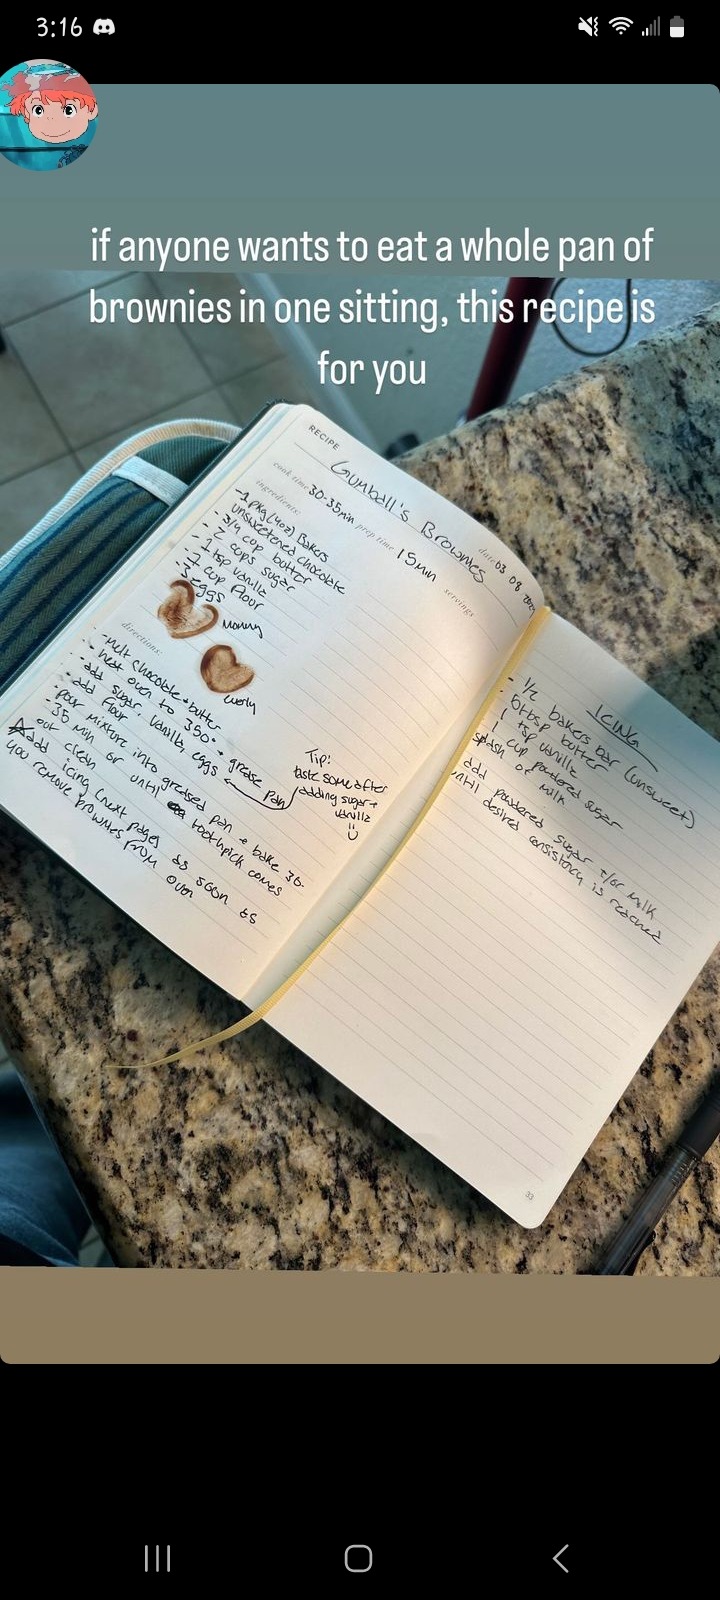 3:16
if anyone wants to eat a whole pan of
brownies in one sitting, this recipe is
for you
RECIPE
Gumball's Brownies
date: 03 08
cook time 30-35min prep time 15min servings
ingredients:
-1 pkg (4oz) Bakers
unsweetened chocolate
- 3/4 cup butter
- 2 cups sugar
- 1 tsp vanilla
- 1 cup flour
- 3 eggs
Mommy
directions:
-melt chocolate + butter
- heat oven to 350° + grease pan
- add sugar, vanilla, eggs
- add flour
- pour mixture into greased pan + bake 30-
35 min or until toothpick comes
out clean
add icing (next page) as soon as
you remove brownies from oven
Tip:
taste some after
adding sugar +
vanilla
ICING
- 1/2 bakers bar (unsweet)
- 5 tbsp butter
- 1 tsp vanilla
- 1 cup powdered sugar
- splash of milk
add powdered sugar +/or milk
until desired consistency is reached
33